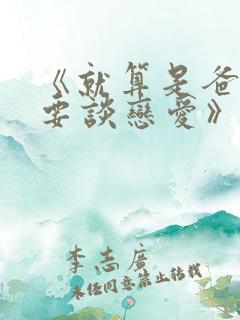 《就算是爸
要談戀愛》
李志廣
未經同意禁止轉載